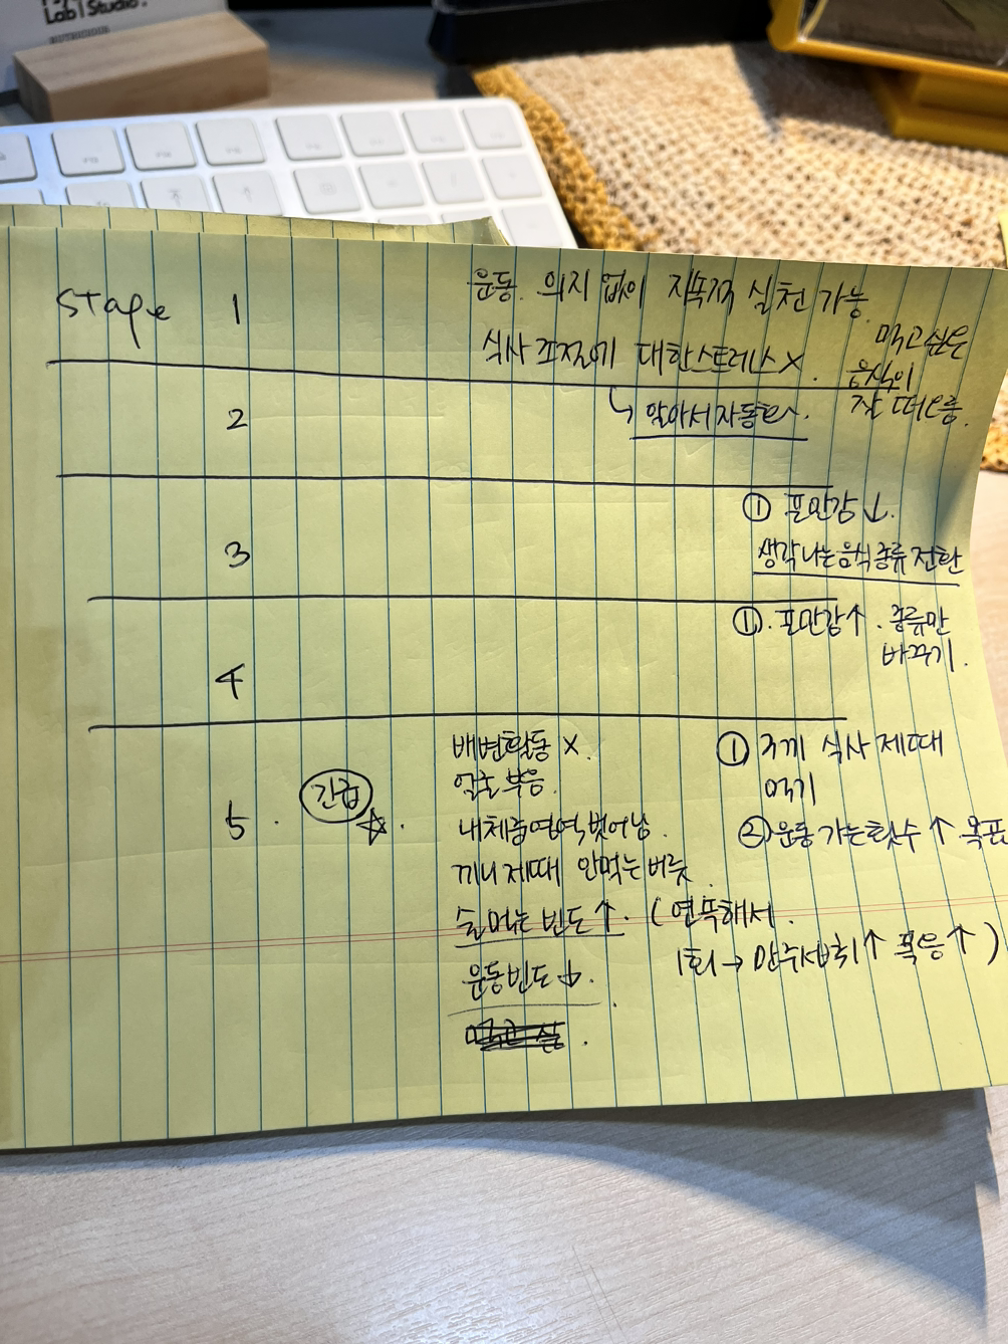 Lab | Studio.
stage 1
운동. 의지 없이 지속적 실천 가능.
식사 조절에 대한 스트레스 X.
먹고 싶은
음식이
잘 떠오름.
2
↳ 알아서 자동
3
① 포만감 ↓.
생각나는 음식 종류 전환
4
① . 포만감 ↑ . 종류만
바꾸기.
5 . 간헐 ☆ .
배변활동 X.
얼굴 부음.
내 체중 영역 벗어남.
끼니 제때 안먹는 버릇.
술 먹는 빈도 ↑. ( 연뚝해서.
1회 → 안주섭취 ↑ 폭음 ↑ )
운동빈도 ↓.
① 3끼 식사 제때
먹기
② 운동 가는 횟수 ↑ 목표